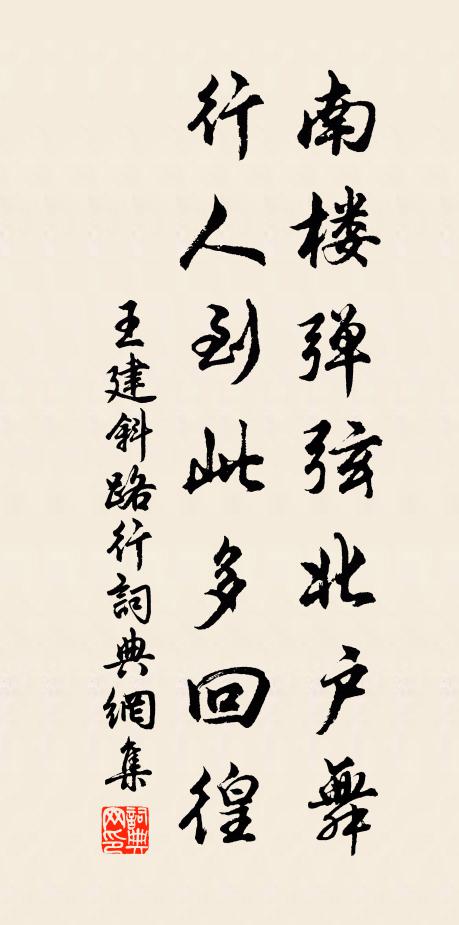 南楼弹弦北户舞
行人到此多回徨
王建斜路行詞典網集
詞典网印